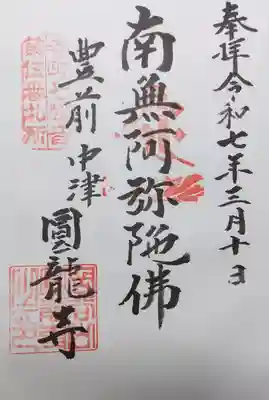 奉拝令和七年三月十日
南無阿弥陀佛
豊前中津
圓龍寺